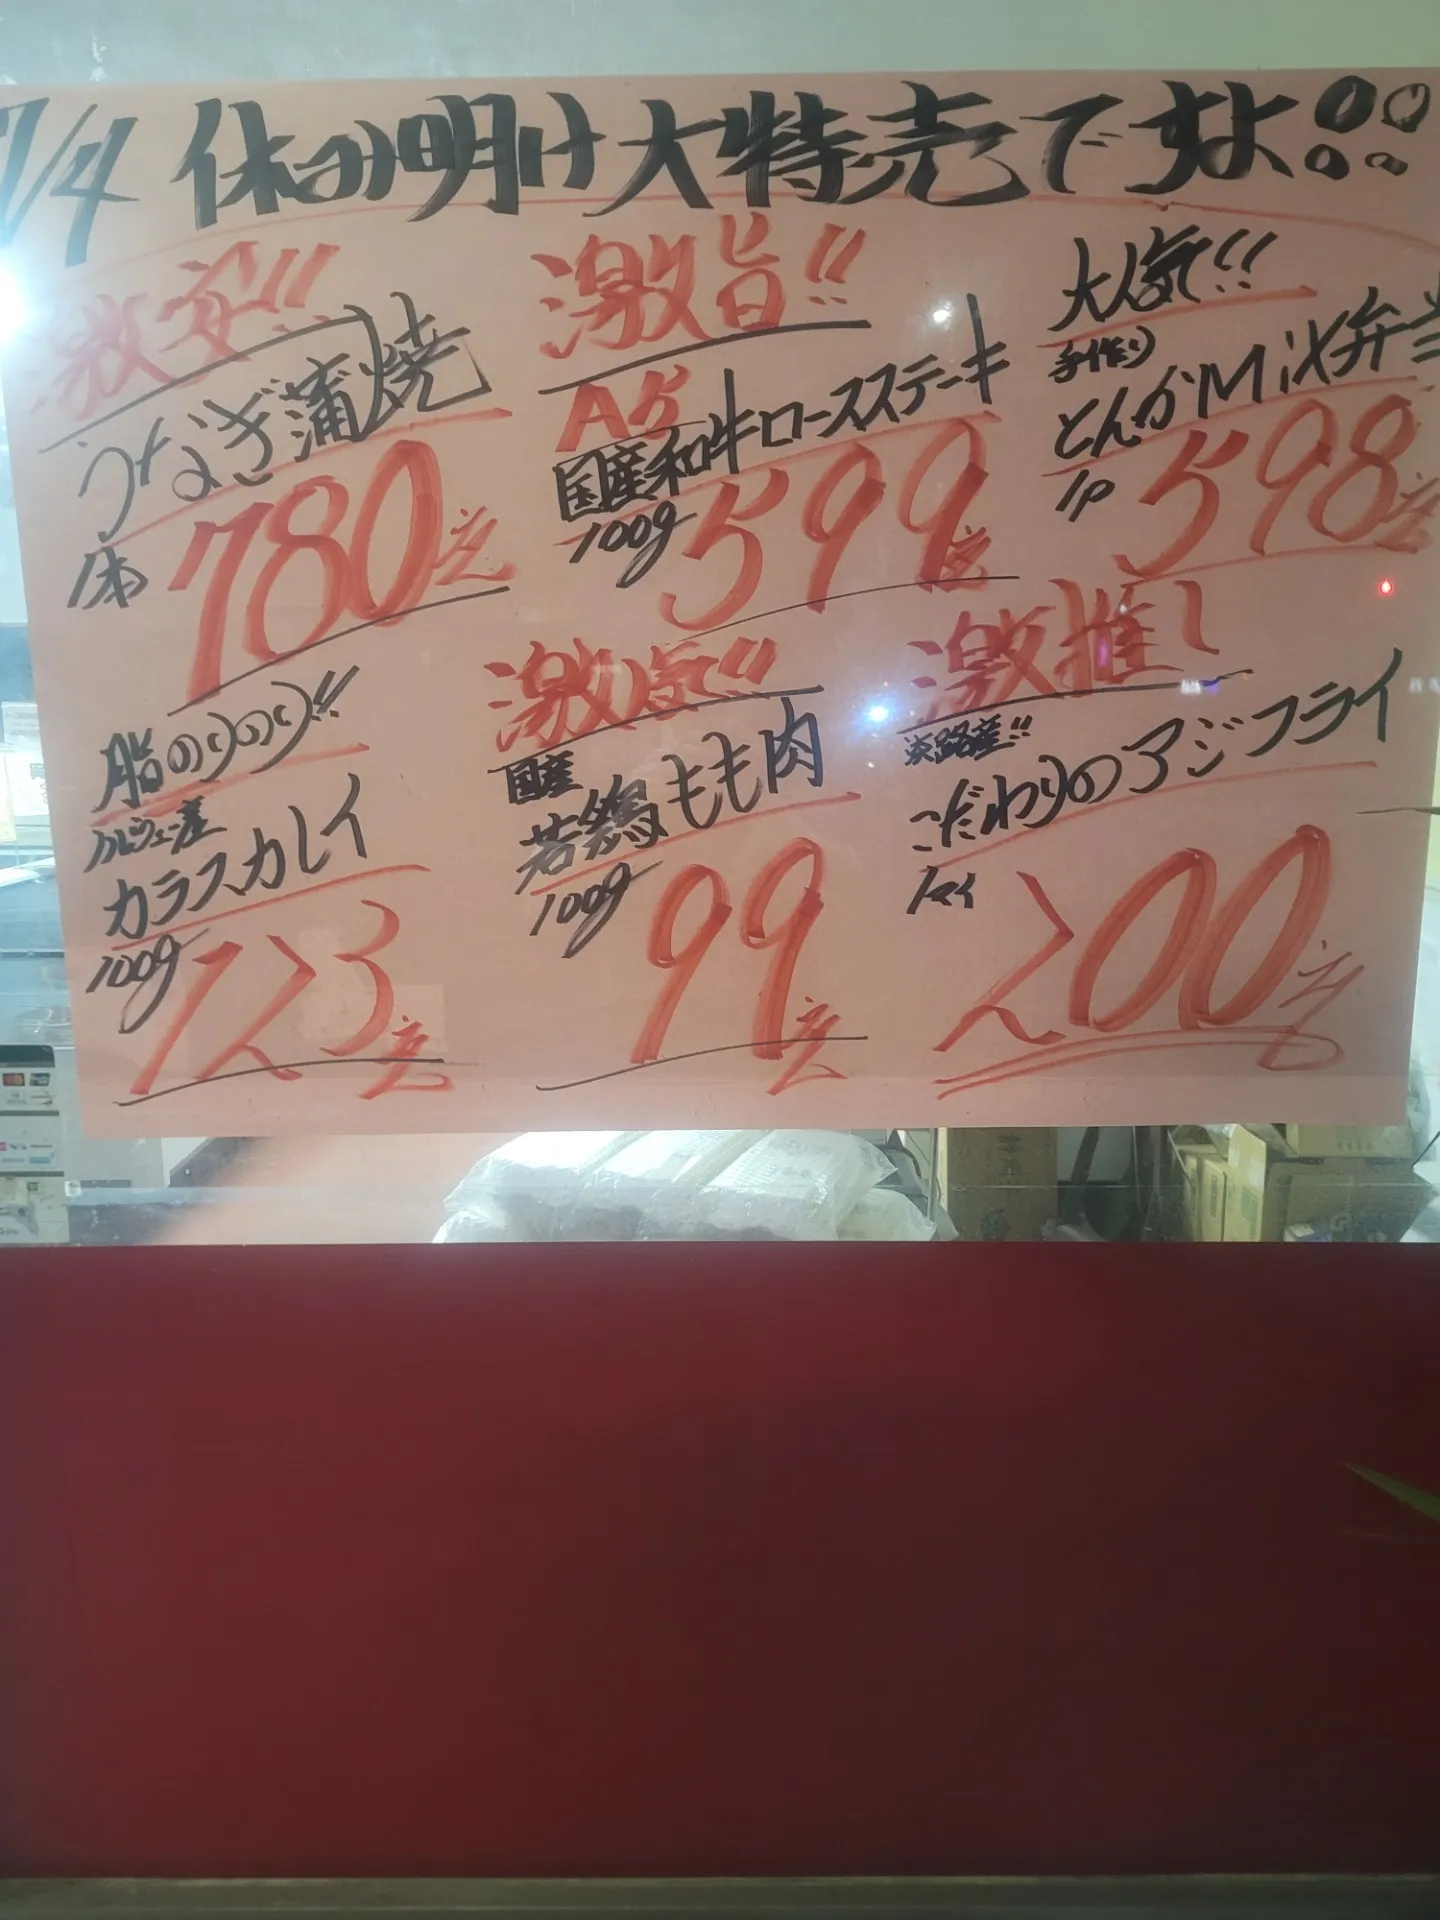 7/4 休み明け大特売ですよ!!
激安!!
うなぎ蒲焼
1本 780円
激旨!!
A5
国産和牛ロースステーキ
100g 599円
大人気!!
手作り
とんかMix弁当
1P 598円
脂のりのり!!
ノルウェー産
カラスカレイ
100g 123円
激人気!!
国産
若鶏もも肉
100g 99円
激推し
淡路産!!
こだわりのアジフライ
1マイ 200円